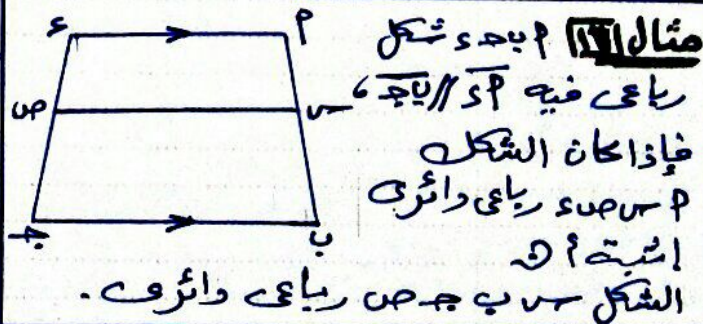 مثال ١٢ م ب جـ ء شكل
رباعى فيه م ء // ب جـ ،
فإذا كان الشكل
م س ص ء رباعى دائرى
إثبت أن
الشكل س ب جـ ص رباعى دائرى .
ء م
ص س
جـ ب